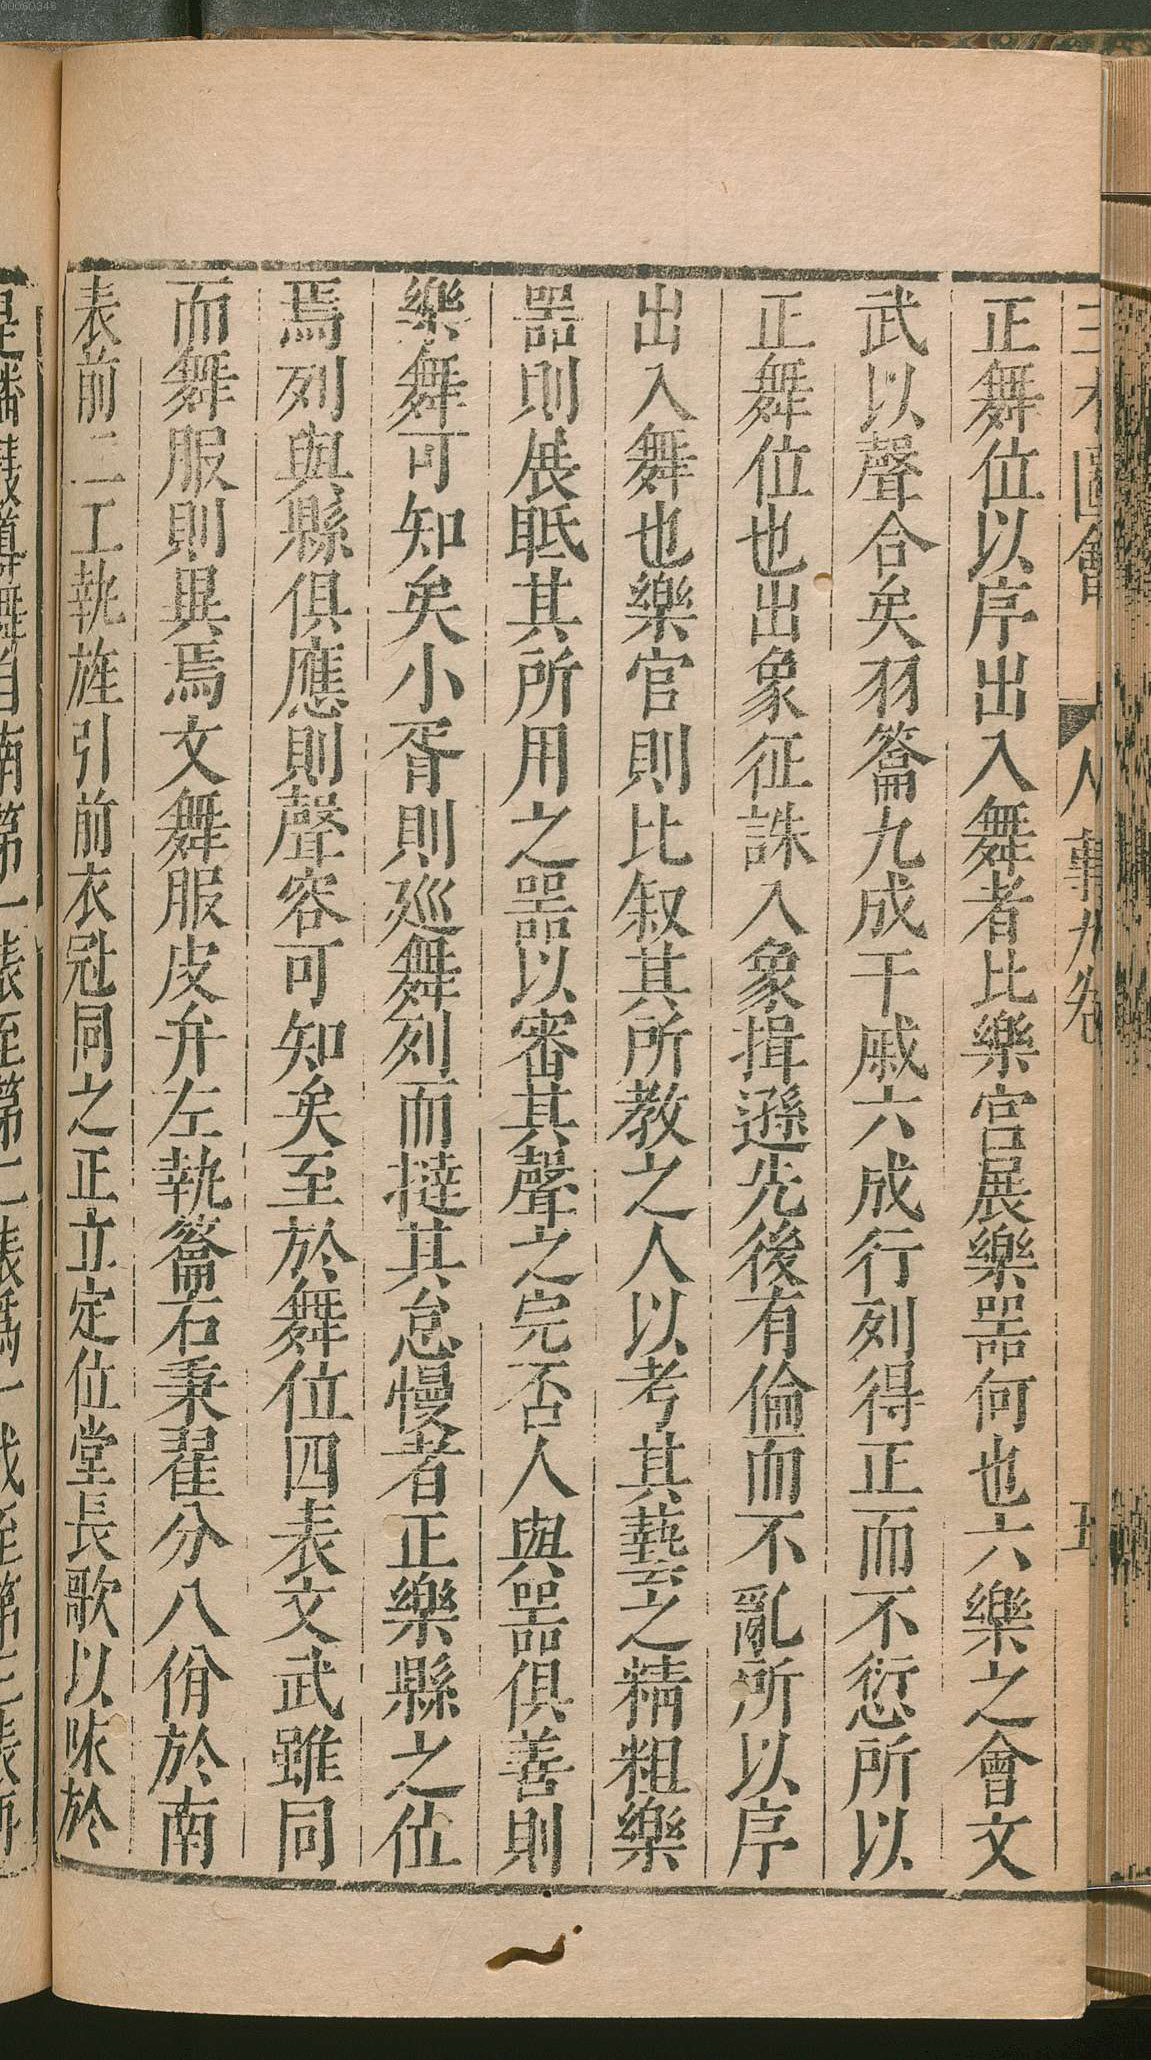 00060348
三才圖會 人事九卷 五
正舞位以序出入舞者比樂宮展樂噐何也六樂之會文
武以聲合矣羽籥九成干戚六成行列得正而不愆所以
正舞位也出象征誅入象揖遜先後有倫而不亂所以序
出入舞也樂官則比叙其所教之人以考其藝之精粗樂
噐則展眡其所用之噐以審其聲之完否人與噐俱善則
樂舞可知矣小胥則廵舞列而撻其怠慢者正樂縣之位
焉列與縣俱應則聲容可知矣至於舞位四表文武雖同
而舞服則異焉文舞服皮弁左執籥右秉翟分八佾於南
表前二工執旌引前衣冠同之正立定位堂長歌以咏於
是播鼗導舞自南第一表至第二表爲一成至第三表